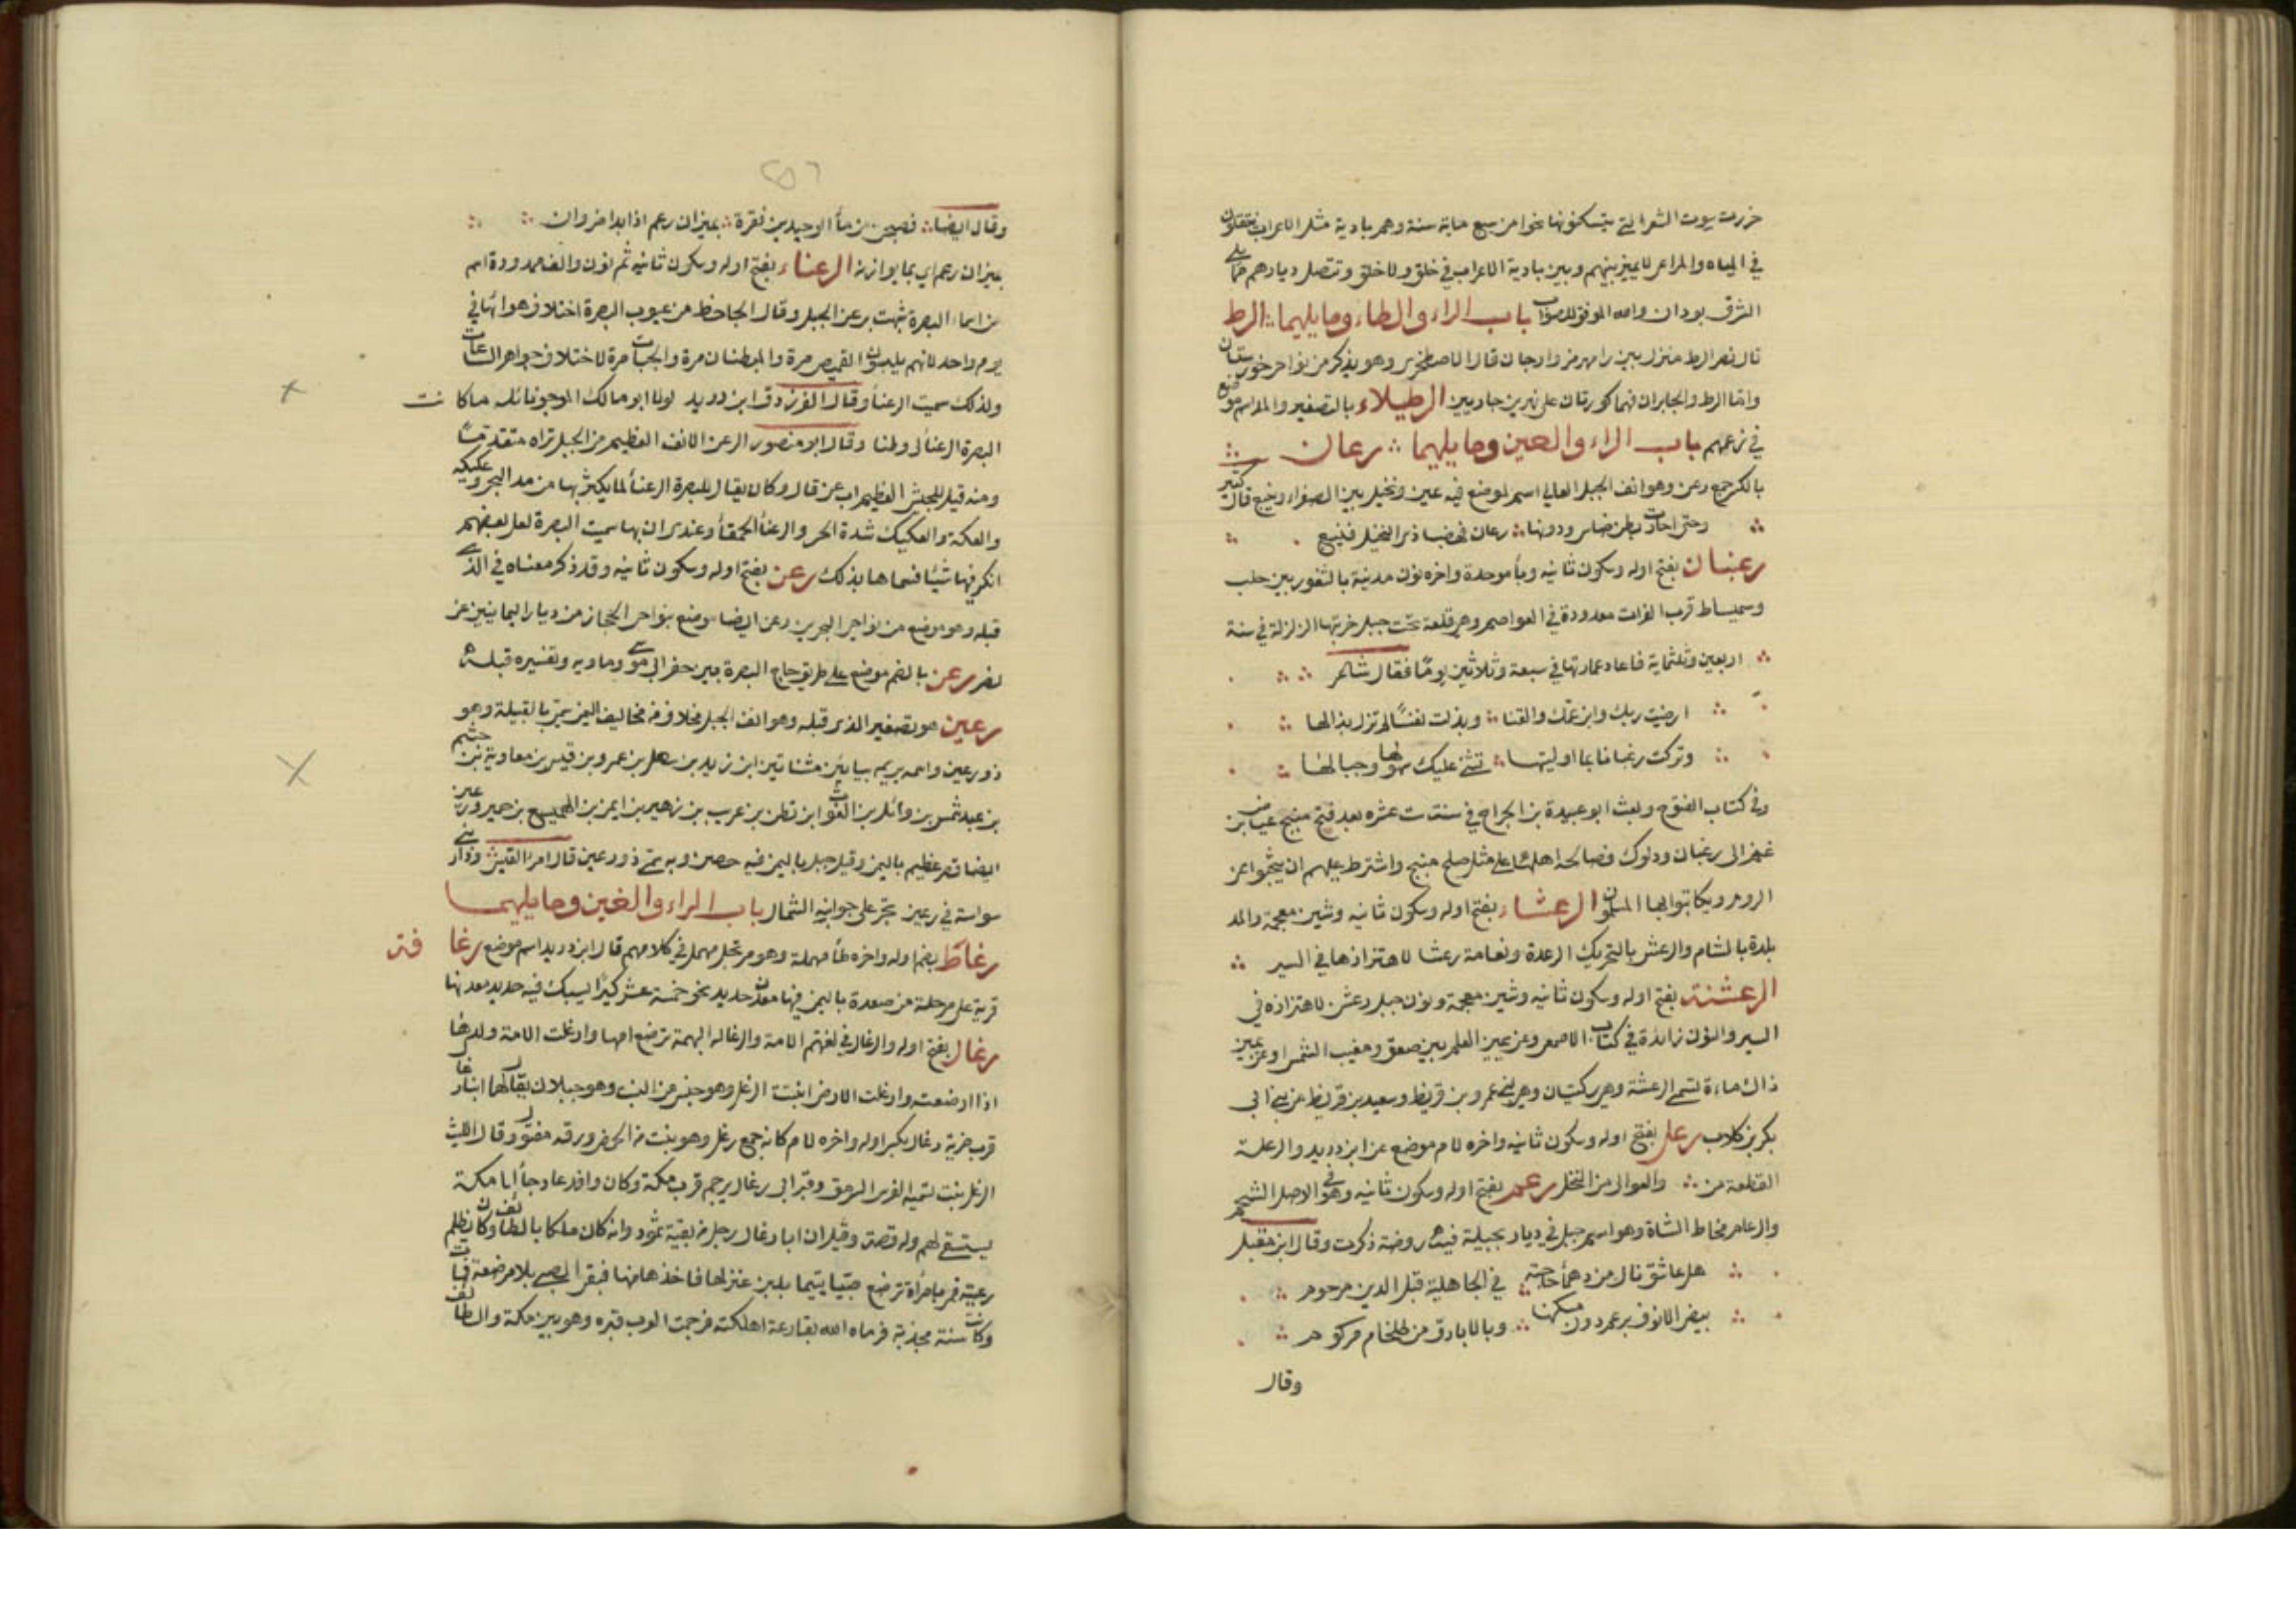 حزرت بيوت الشعر التي يسكنونها نحوا من سبع ماية سنة وهم بادية مثل الاعراب ينتقلون
في المياه والمراعي لا يميز بينهم وبين بادية الاعراب في خلق ولا خلق وتتصل ديارهم مما يلي
الشرق بودان والله الموفق للصواب باب الراء والطاء وما يليهما الرط
قال نصر الرط منزل بين رامهرمز وارجان قال الاصطخري وهو يذكر من نواحي خوزستان
واما الرط والجابران فهما كورتان على نهرين جاريين الرطيلاء بالتصغير والمد اسم موضع
في زعمهم باب الراء والعين وما يليهما رعان
بالكسر جمع رعن وهو انف الجبل العالي اسم لموضع فيه عين ونخيل بين الصفراء وينبع قال كثير
وحتى اجازت بطن ضاس ودونها رعان فهضبا ذي النخيل فينبع
رعبان بفتح اوله وسكون ثانيه وبأ موحدة واخره نون مدينة بالثغور بين حلب
وسميساط قرب الفرات معدودة في العواصم وهي قلعة تحت جبل خربتها الزلزلة في سنة
اربعين وثلثماية فاعاد عمارتها في سبعة وثلاثين يومًا فقال شاعر
ارضيت ربك وابن عمك والقنا وبذلت نفسًا لم تزل بذالها
وتركت رعبانا بما اوليتها تثني عليك سهولها وجبالها
وفي كتاب الفتوح وبعث ابو عبيدة بن الجراح في سنة ست عشره بعد فتح منبج عياض بن
غنم الى رعبان ودلوك فصالحه اهلها على مثل صلح منبج واشترط عليهم ان يبحثوا عن
الروم ويكاتبوا بها المسلمون الرعشاء بفتح اوله وسكون ثانيه وشين معجمة والمد
بلدة بالشام والرعش بالتحريك الرعدة ونعامة رعشا لاهتزازها في السير
الرعشنة بفتح اوله وسكون ثانيه وشين معجمة ونون جبل رعشن لاهتزازه في
السير والنون زائدة في كتاب الاصمعي وعن يمين العلم بين صعق ومغيب الشمس او عن يمين
ذاك ماءة تسمى الرعشنة وهي ركيتان وهي لبني عمرو بن قريظ وسعيد بن قريظ من بني ابي
بكر بن كلاب رعل بفتح اوله وسكون ثانيه واخره لام موضع عن ابن دريد والرعلة
القطعة من والعوالي من النخل رعم بفتح اوله وسكون ثانيه وهو في الاصل الشحم
والرعام مخاط الشاة وهو اسم جبل في ديار بجيلة فيه روضة ذكرت وقال ابن مقبل
هل عاشق نال من دهمأ حاجته في الجاهلية قبل الدين مرحوم
بيض الانوق برعم دون مسكنها وبالابارق من طلخام مركوم
وقال
وقال ايضا فصبحن من مأ الوحيدين نقرة بميزان رعم اذا بدا ضروان
بميزان رعم اي بما يوازنه الرعناء بفتح اوله وسكون ثانيه ثم نون والف ممدودة اسم
من اسماء البصرة شبهت برعن الجبل وقال الجاحظ من عيوب البصرة اختلاف هوائها في
يوم واحد لانهم يلبسون القميص مرة والمبطنات مرة والجباب مرة لاختلاف جواهر الساعات
ولذلك سميت الرعنأ وقال الفرزدق ابن دريد لولا ابو مالك المرجو نائله ما كانت
البصرة الرعنأ لي وطنا وقال ابو منصور الرعن الانف العظيم من الجبل تراه متقدمًا
ومنه قيل للجيش العظيم ارعن قال وكان يقال للبصرة الرعنأ لما يكثر بها من مد البحر وعكيكه
والعكة والعكيك شدة الحر والرعنأ الحمقأ وعندي ان بها سميت البصرة لعل بعضهم
انكر فيها شيئا فسماها بذلك رعن بفتح اوله وسكون ثانيه وقد ذكر معناه في الذي
قبله وهو موضع من نواحي البحرين رعن ايضا موضع بنواحي الحجاز من ديار اليمانيين عن
نصر رعن بالضم موضع على طريق حاج البصرة بين حفر ابي موسى وماويه وتفسيره قبله
رعين هو تصغير الذي قبله وهو انف الجبل مخلاف من مخاليف اليمن سمي بالقبيلة وهو
ذو رعين واسمه يريم بيايين مثناتين ابن زيد بن سهل بن عمرو بن قيس بن معاوية بن جشم
بن عبد شمس بن وائل بن الغوث ابن قطن بن عريب بن زهير بن ايمن بن الهميسع بن حمير ورعين
ايضا قصر عظيم باليمن وقيل جبل باليمن فيه حصن وبه سمي ذو رعين قال امرا القيس ودار بني
سواسة في رعين تجر على جوانبه الشمال باب الراء والغين وما يليهما
رغاط بضم اوله واخره طأ مهملة وهو مرتجل مهمل في كلامهم قال ابن دريد اسم موضع رغافة
قرية على مرحلة من صعدة باليمن فيها معدن حديد نحو خمسة عشر كيرًا يسبك فيه حديد معدنها
رغال بفتح اوله والرغال في لغتهم الامة والرغاله البهمة ترضع امها وارغلت الامة ولدها
اذا ارضعته وارغلت الارض انبتت الرغل وهو جنس من النبت وهو جبلان يقال لهما ابنا رغال
قرب ضرية رغال بكسر اوله واخره لام كانه جمع رغل وهو نبت من الحمض ورقه مفتول وقال الليث
الرغل نبت تسميه الفرس السرمق وقبر ابي رغال يرجم قرب مكة وكان وافد عاد جأ الى مكة
يستسقي لهم وله قصة وقيل ان ابا رغال رجل من بقية ثمود وانه كان ملكا بالطائف وكان يظلم
رعيته فمر بامرأة ترضع صبيا يتيما بلبن عنز لها فاخذها منها فبقي الصبي بلا مرضعة فمات
وكانت سنة مجدبة فرماه الله بقارعة اهلكته فرجمت العرب قبره وهو بين مكة والطائف